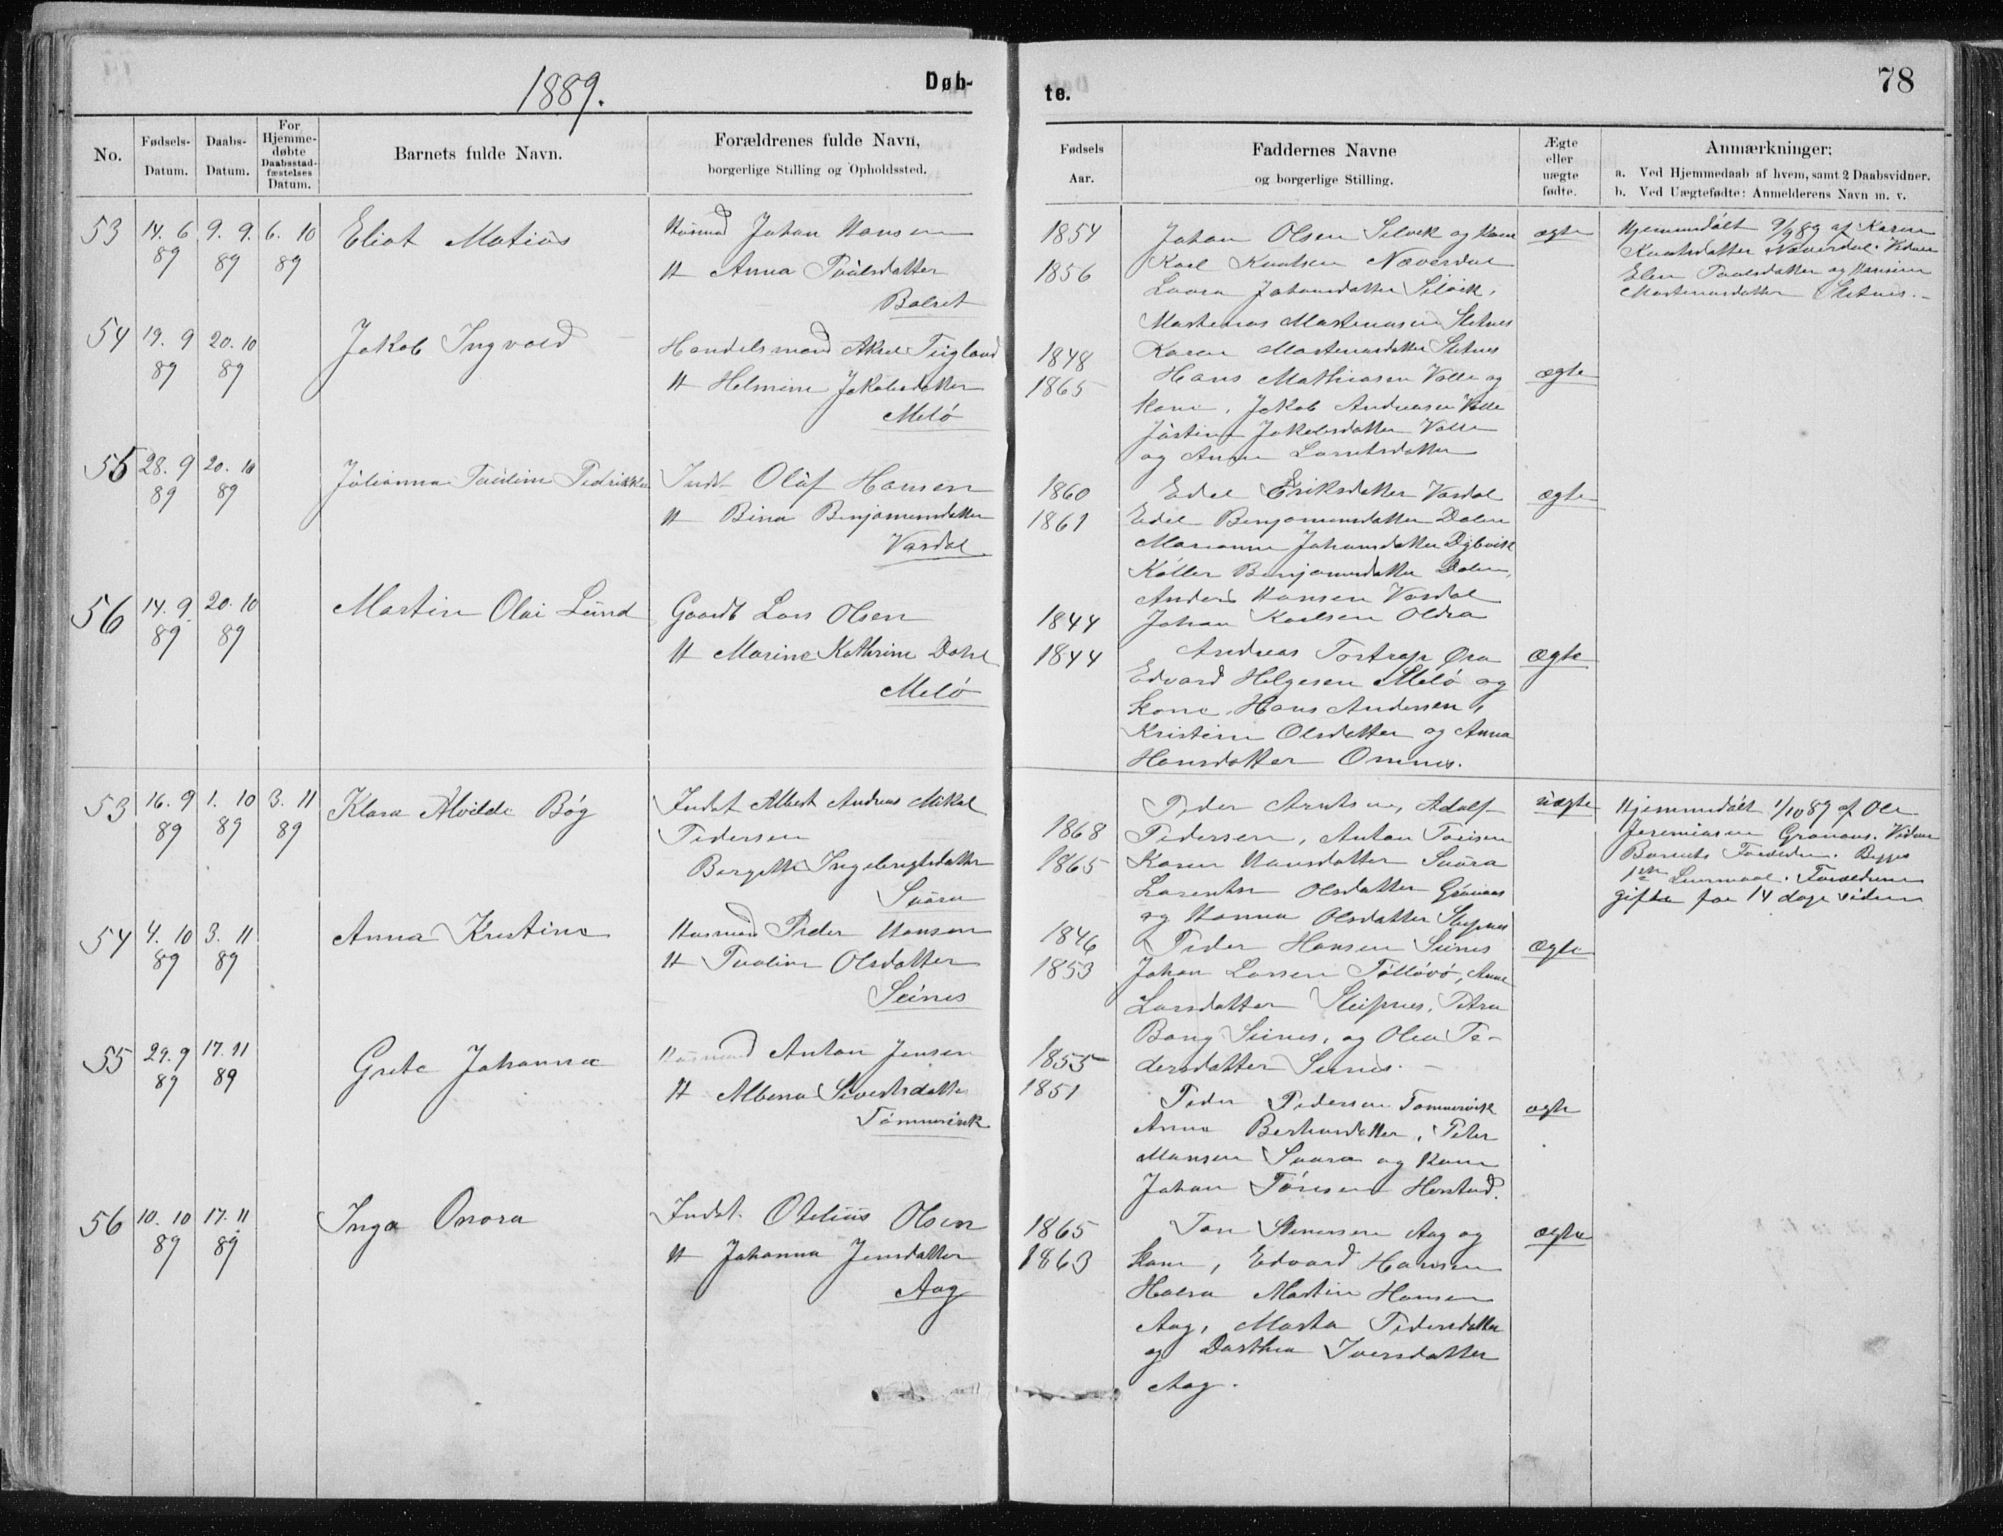 1889.
Døb-
te.
78
No.
Fødsels-
Datum.
Daabs-
Datum.
For
Hjemme-
døbte
Daabsstad-
fæstelses
Datum.
Barnets fulde Navn.
Forældrenes fulde Navn,
borgerlige Stilling og Opholdssted.
Fødsels
Aar.
Faddernes Navne
og borgerlige Stilling.
Ægte
eller
uægte
fødte.
Anmærkninger:
a. Ved Hjemmedaab af hvem, samt 2 Daabsvidner.
b. Ved Uægtefødte: Anmelderens Navn m. v.
53
14. 6
89
9. 9.
89
6. 10
89
Eliot Matias
Husmd Johan Hansen
H Anna Paulsdatter
1854
1856
Johan Olsen Selvik og kone
Karl Knutsen Næverdal
Laura Johansdatter Selvik,
Martenas Martenasen Sletnes
Karen Martenasdatter Sletnes
ægte
Hjemmedøbt 9/9 89 af Karen
Knutsdatter Næverdal. Vidner
Elen Paulsdatter og
Martenasdatter Sletnes.-
54
19. 9
89
20. 10
89
Jakob Ingvald
Handelsmand Aksel
H Helmine Jakobsdatter
Melø
1848
1865
Hans Mathiasen Valle og
kone, Jakob Andreasen Valle
Justine Jakobsdatter Valle
og Anne Lorntsdatter
ægte
55
28. 9
89
20. 10
89
Julianna Pauline Pedrikke
Indst Oluf Hansen
H Bina Benjamensdatter
Vardal
1860
1861
Edel Eriksdatter Vardal
Edel Benjamensdatter Dalen
Marianne Johansdatter Dybvik
Benjamensdatter Dalen,
Anders Hansen Vardal
Johan Karlsen Oldra
ægte
56
14. 9
89
20. 10
89
Martin Olai Lund
Gaardb Lars Olsen
H Marine Kathrine Dahl
Melø
1844
1844
Andreas Tostrup Øra
Edvard Helgesen Melø og
kone, Hans Andersen,
Kristine Olsdatter og Anna
Hansdatter Omnes.
ægte
53
16. 9
89
1. 10
89
3. 11
89
Klara Alvilde Bøg
Indst Albert Andreas Mikal
Pedersen
Bergette Ingebrigtsdatter
1868
1865
Peder Arntsen, Adolf
Pedersen, Anton
Karen Hansdatter
Olsdatter
og Hanna Olsdatter
uægte
Hjemmedøbt 1/10 89 af Ole
Jeremiasen Grønaas. Vidner
Barnets Forældre. Begges
1ste Leiermaal. Forældrene
gifte for 14 dage siden
54
4. 10
89
3. 11
89
Anna Kristine
Husmand Peder Hansen
H Pauline Olsdatter
Seines
1846
1853
Peder Hansen Seines
Johan Larsen
Larsdatter Sleipnes, Petra
Bang Seines, og Olea Pe-
dersdatter Seines. -
ægte
55
29. 9
89
17. 11
89
Grete Johanna
Husmand Anton Jensen
H Albena Sivertsdatter
Tømmervik
1855
1851
Peder Pedersen Tømmervik
Anna datter, Peter
Hansen og kone
Johan
ægte
56
10. 10
89
17. 11
89
Inga Onora
Indst. Otelius Olsen
H Johanna Jensdatter
Aag
1865
1863
Ton Steensen Aag og
kone, Edvard Hansen
Martin Hansen
Aag, Marta Pedersdatter
og Dorthea Iversdatter
Aag.
ægte